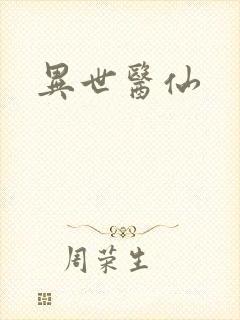 異世醫仙
周荣生